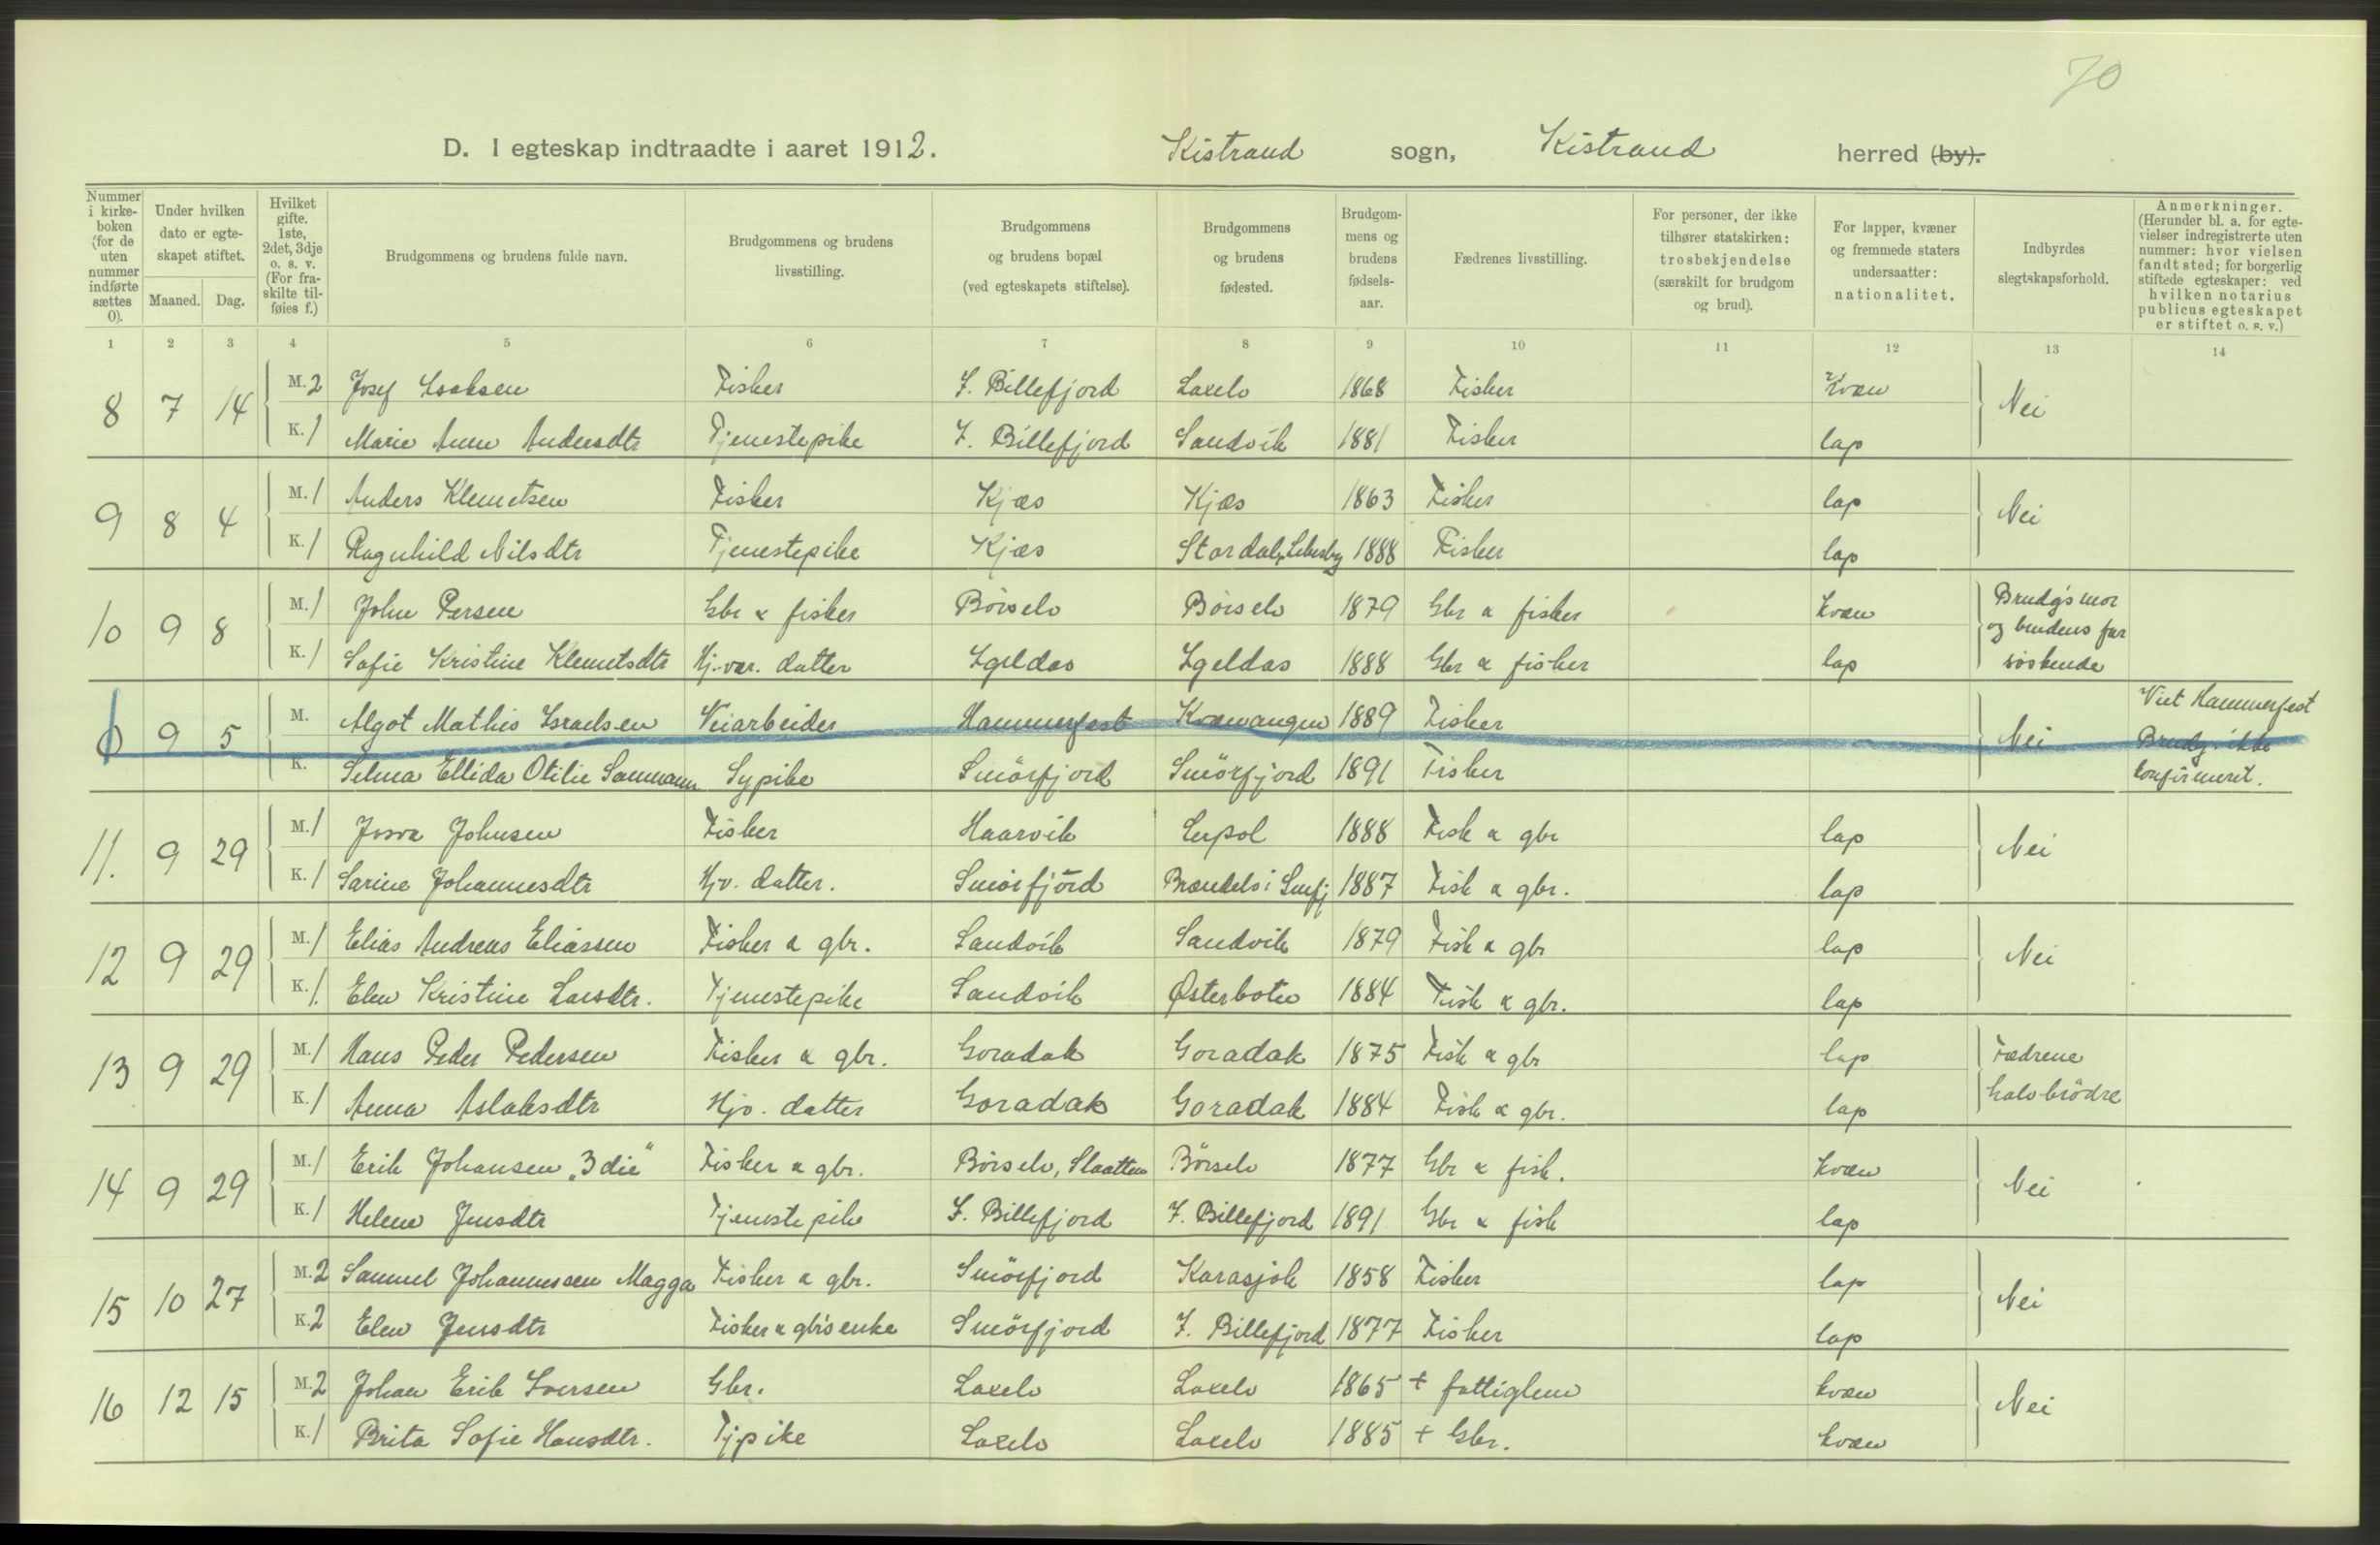 70
D. I egteskap indtraadte i aaret 1912. Kistrand sogn, Kistrand herred (by).
Nummer i kirkeboken (for de uten nummer indførte sættes 0). Under hvilken dato er egteskapet stiftet. Maaned. Dag. Hvilket gifte. 1ste, 2det, 3dje o. s. v. (For fraskilte tilføies f.) Brudgommens og brudens fulde navn. Brudgommens og brudens livsstilling. Brudgommens og brudens bopæl (ved egteskapets stiftelse). Brudgommens og brudens fødested. Brudgommens og brudens fødselsaar. Fædrenes livsstilling. For personer, der ikke tilhører statskirken: trosbekjendelse (særskilt for brudgom og brud). For lapper, kvæner og fremmede staters undersaatter: nationalitet. Indbyrdes slegtskapsforhold. Anmerkninger. (Herunder bl. a. for egtevielser indregistrerte uten nummer: hvor vielsen fandt sted; for borgerlig stiftede egteskaper: ved hvilken notarius publicus egteskapet er stiftet o. s. v.)
1 2 3 4 5 6 7 8 9 10 11 12 13 14
8 7 14 M. 2 Josef Isaksen Fisker I. Billefjord Laxelv 1868 Fisker kvæn Nei
K. 1 Marie Anne Andersdtr Tjenestepike I. Billefjord Sandvik 1881 Fisker lap
9 8 4 M. 1 Anders Klemetsen Fisker Kjæs Kjæs 1863 Fisker lap Nei
K. 1 Ragnhild Nilsdtr Tjenestepike Kjæs Stordal, Lebesby 1888 Fisker lap
10 9 8 M. 1 John Persen Gbr & fisker Börselv Börselv 1879 Gbr & fisker kvæn Brudg's mor og brudens far söskende
K. 1 Sofie Kristine Klemetsdtr Hj.vær. datter Igeldas Igeldas 1888 Gbr & fisker lap
0 9 5 M. Algot Mathis Israelsen Veiarbeider Hammerfest Kvænangen 1889 Fisker Nei Viet Hammerfest Brudg. ikke konfirmeret.
K. Selma Ellida Otilie Sammann Sypike Smörfjord Smörfjord 1891 Fisker
11. 9 29 M. 1 Josva Johnsen Fisker Haarvik Lerpol 1888 Fisk & gbr lap Nei
K. 1 Sarine Johannesdtr Hjv. datter. Smörfjord Brændelv i Smfj 1887 Fisk & gbr. lap
12 9 29 M. 1 Elias Andreas Eliassen Fisker & gbr. Sandvik Sandvik 1879 Fisk & gbr lap Nei
K. 1. Elen Kristine Larsdtr. Tjenestepike Sandvik Østerbotn 1884 Fisk & gbr. lap
13 9 29 M. 1 Hans Peder Pedersen Fisker & gbr. Goradak Goradak 1875 Fisk & gbr lap Fædrene halvbrödre
K. 1 Anna Aslaksdtr Hjv. datter Goradak Goradak 1884 Fisk & gbr. lap
14 9 29 M. 1 Erik Johansen „3die" Fisker & gbr. Börselv, Slaatten Börselv 1877 Gbr & fisk. kvæn Nei
K. 1 Helene Jensdtr Tjenestepike I. Billefjord I. Billefjord 1891 Gbr & fisk lap
15 10 27 M. 2 Samuel Johannessen Magga Fisker & gbr. Smörfjord Karasjok 1858 Fisker lap Nei
K. 2 Elen Jensdtr Fisker & gbr's enke Smörfjord I. Billefjord 1877 Fisker lap
16 12 15 M. 2 Johan Erik Iversen Gbr. Laxelv Laxelv 1865 + fattiglem kvæn Nei
K. 1 Brita Sofie Hansdtr. Tjpike Laxelv Laxelv 1885 + Gbr. kvæn